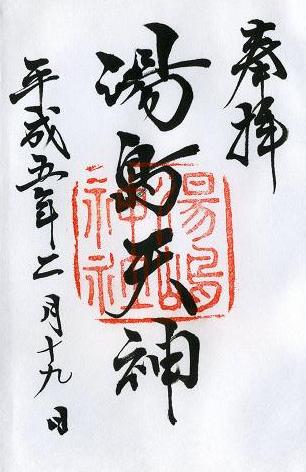 奉拝
湯島天神
湯嶋神社
平成五年二月十九日